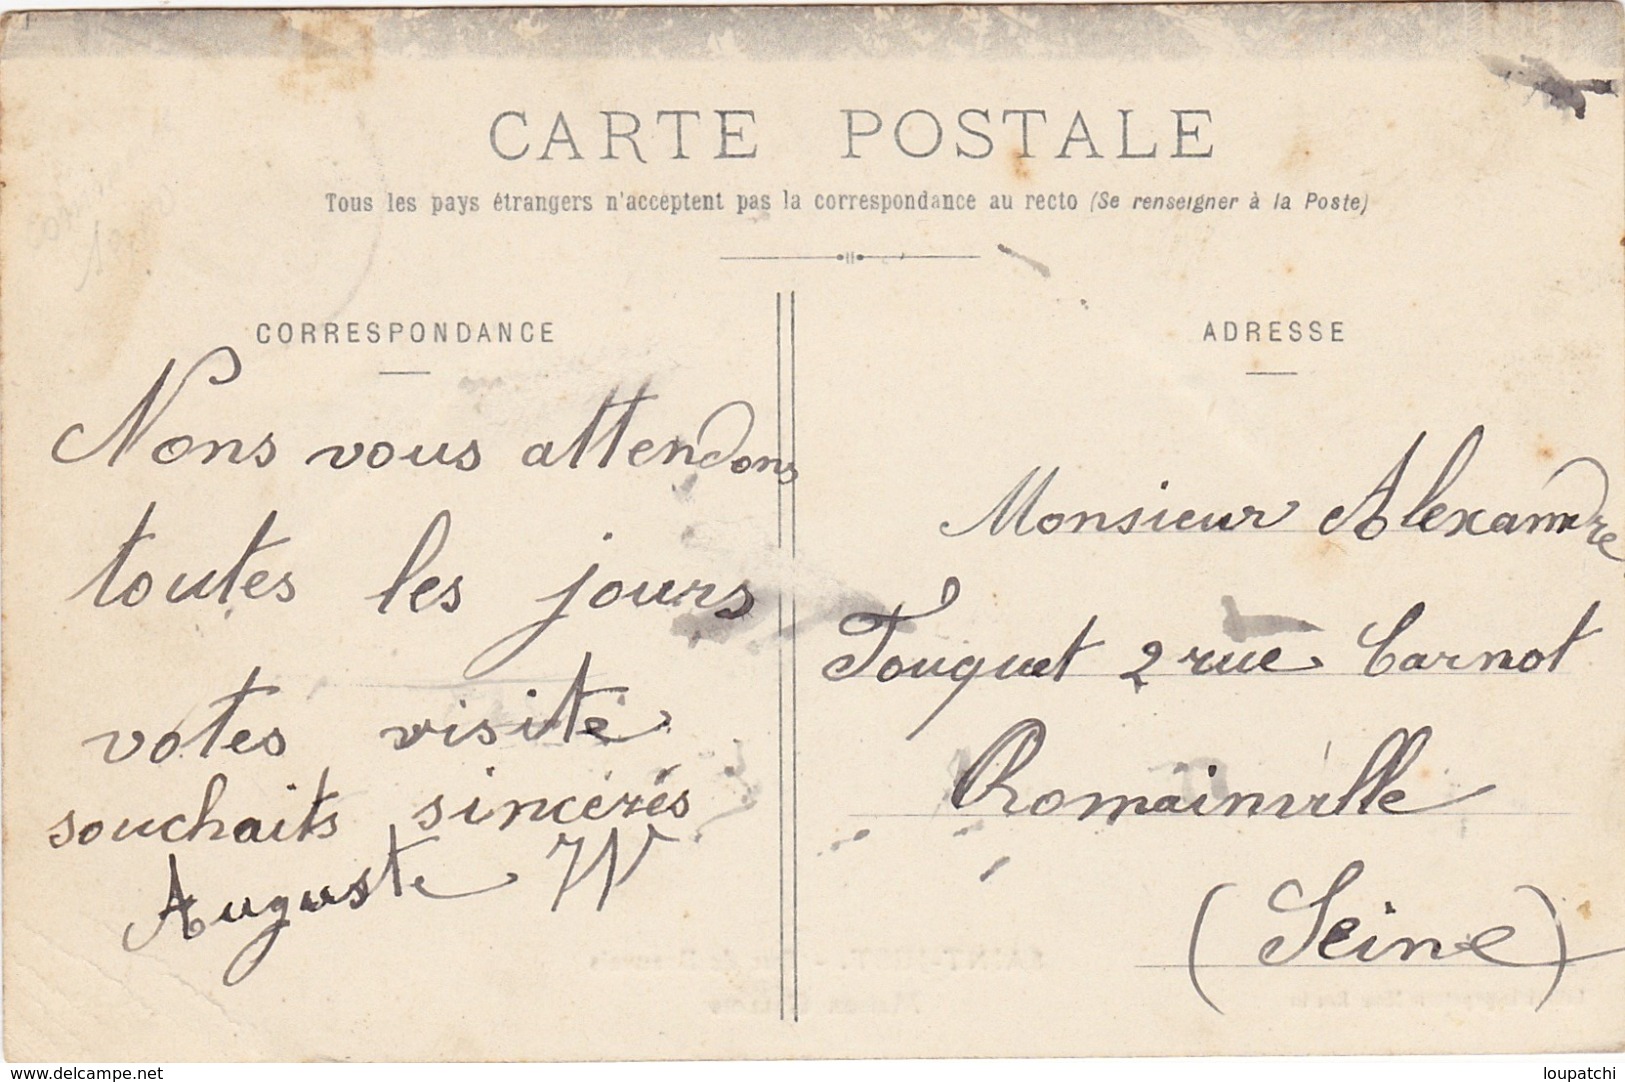 CARTE POSTALE
Tous les pays étrangers n'acceptent pas la correspondance au recto (Se renseigner à la Poste)
CORRESPONDANCE
Nons vous attendons
toutes les jours
votes visite
souchaits sincérés
Auguste
ADRESSE
Monsieur Alexandre
Touquet 2 rue Carnot
Romainville
(Seine)
www.delcampe.net
loupatchi